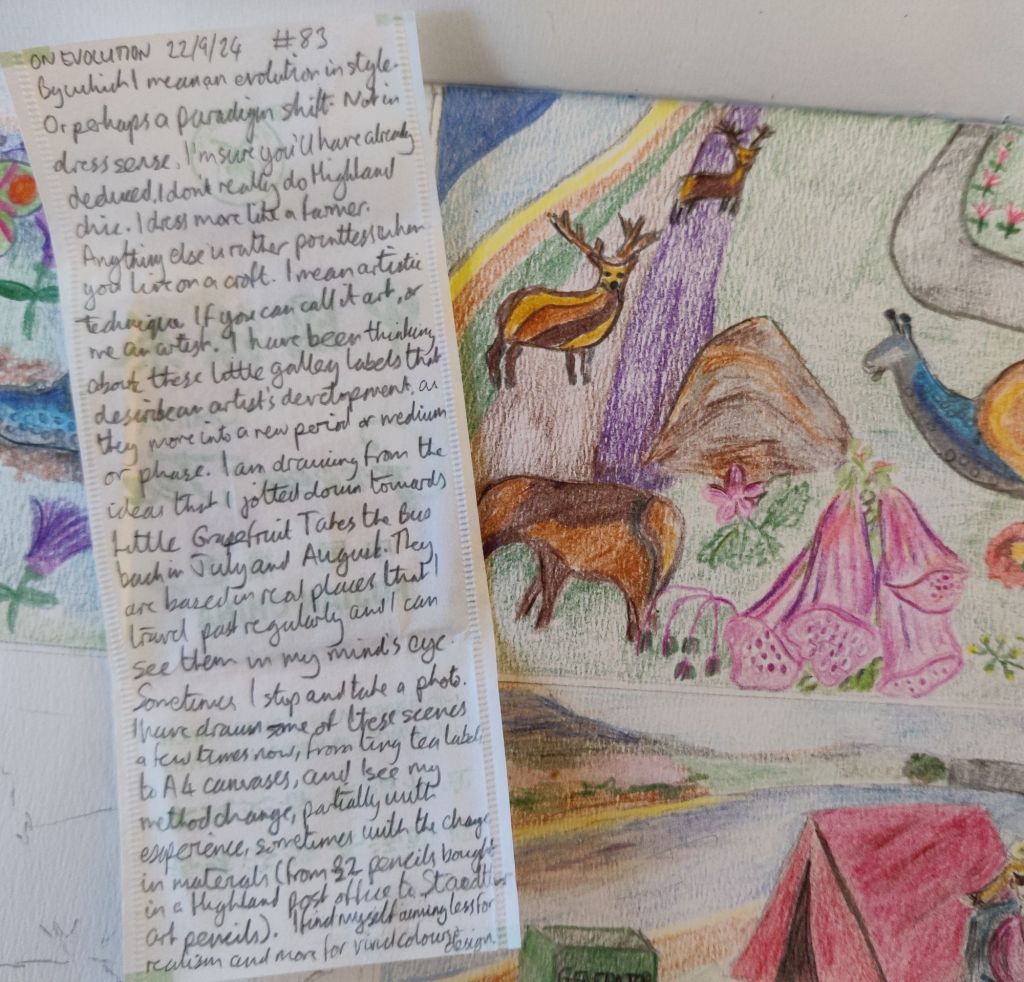 ON EVOLUTION 22/9/24 #83
By which I mean an evolution in style.
Or perhaps a paradigm shift. Not in
dress sense. I'm sure you'll have already
deduced, I don't really do Highland
chic. I dress more like a farmer.
Anything else is rather pointless when
you live on a croft. I mean artistic
technique. If you can call it art, or
me an artist. I have been thinking
about these little gallery labels that
describe an artist's development, as
they move into a new period or medium
or phase. I am drawing from the
ideas that I jotted down towards
Little Grapefruit Takes the Bus
back in July and August. They
are based in real places that I
travel past regularly and I can
see them in my mind's eye.
Sometimes I stop and take a photo.
I have drawn some of these scenes
a few times now, from tiny tea labels
to A4 canvases, and I see my
method change, partially with
experience, sometimes with the change
in materials (from £2 pencils bought
in a Highland post office to Staedtler
art pencils). I find myself aiming less for
realism and more for vivid colour &
design.
GENERATOR